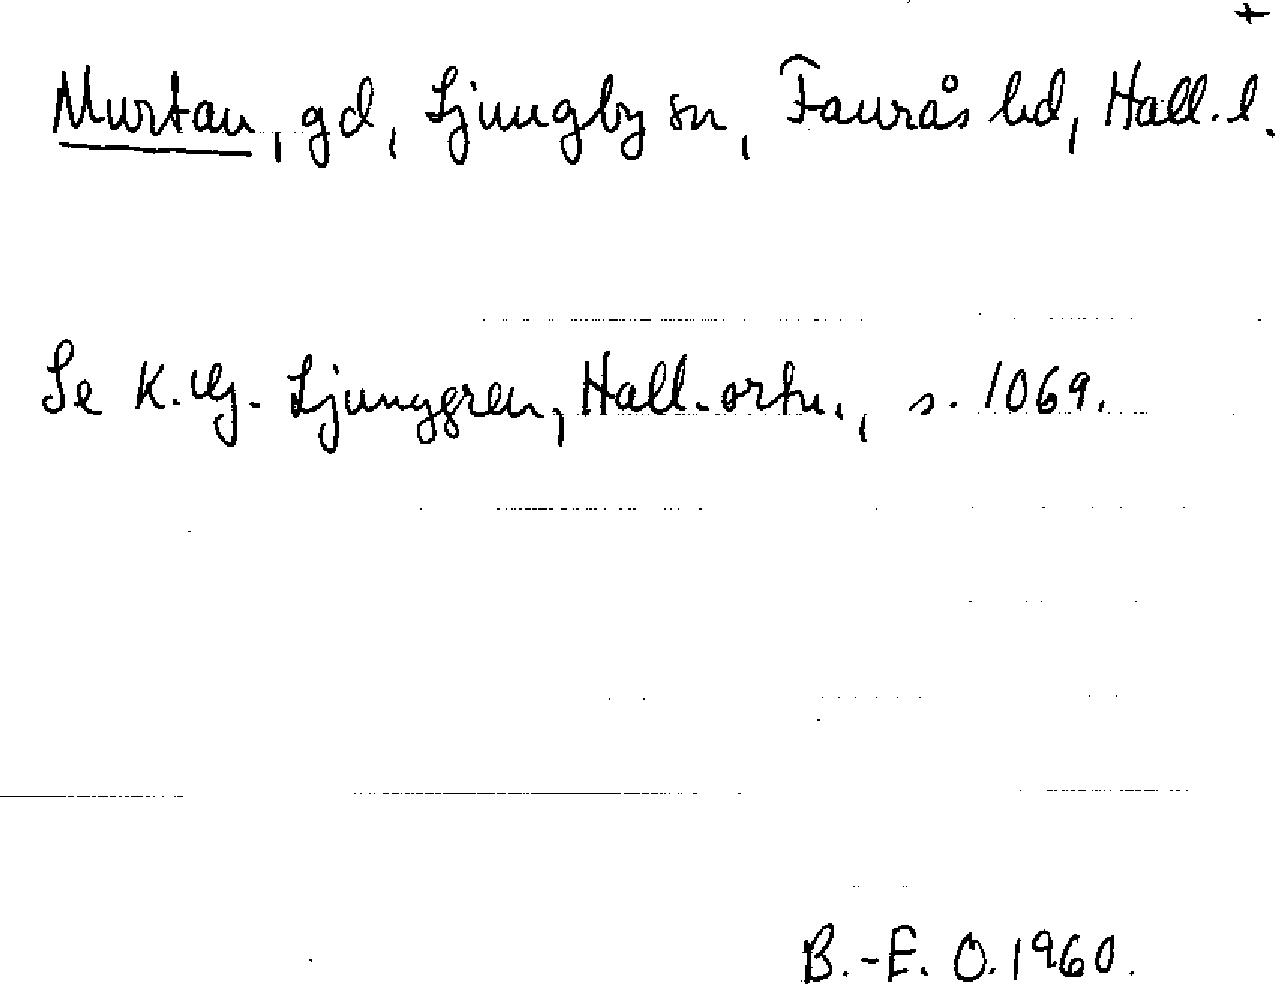 +
Murtan, gd, Ljungby sn, Faurås hd, Hall. l.
Se K. G. Ljunggren, Hall. ortn., s. 1069.
B.-E. O. 1960.